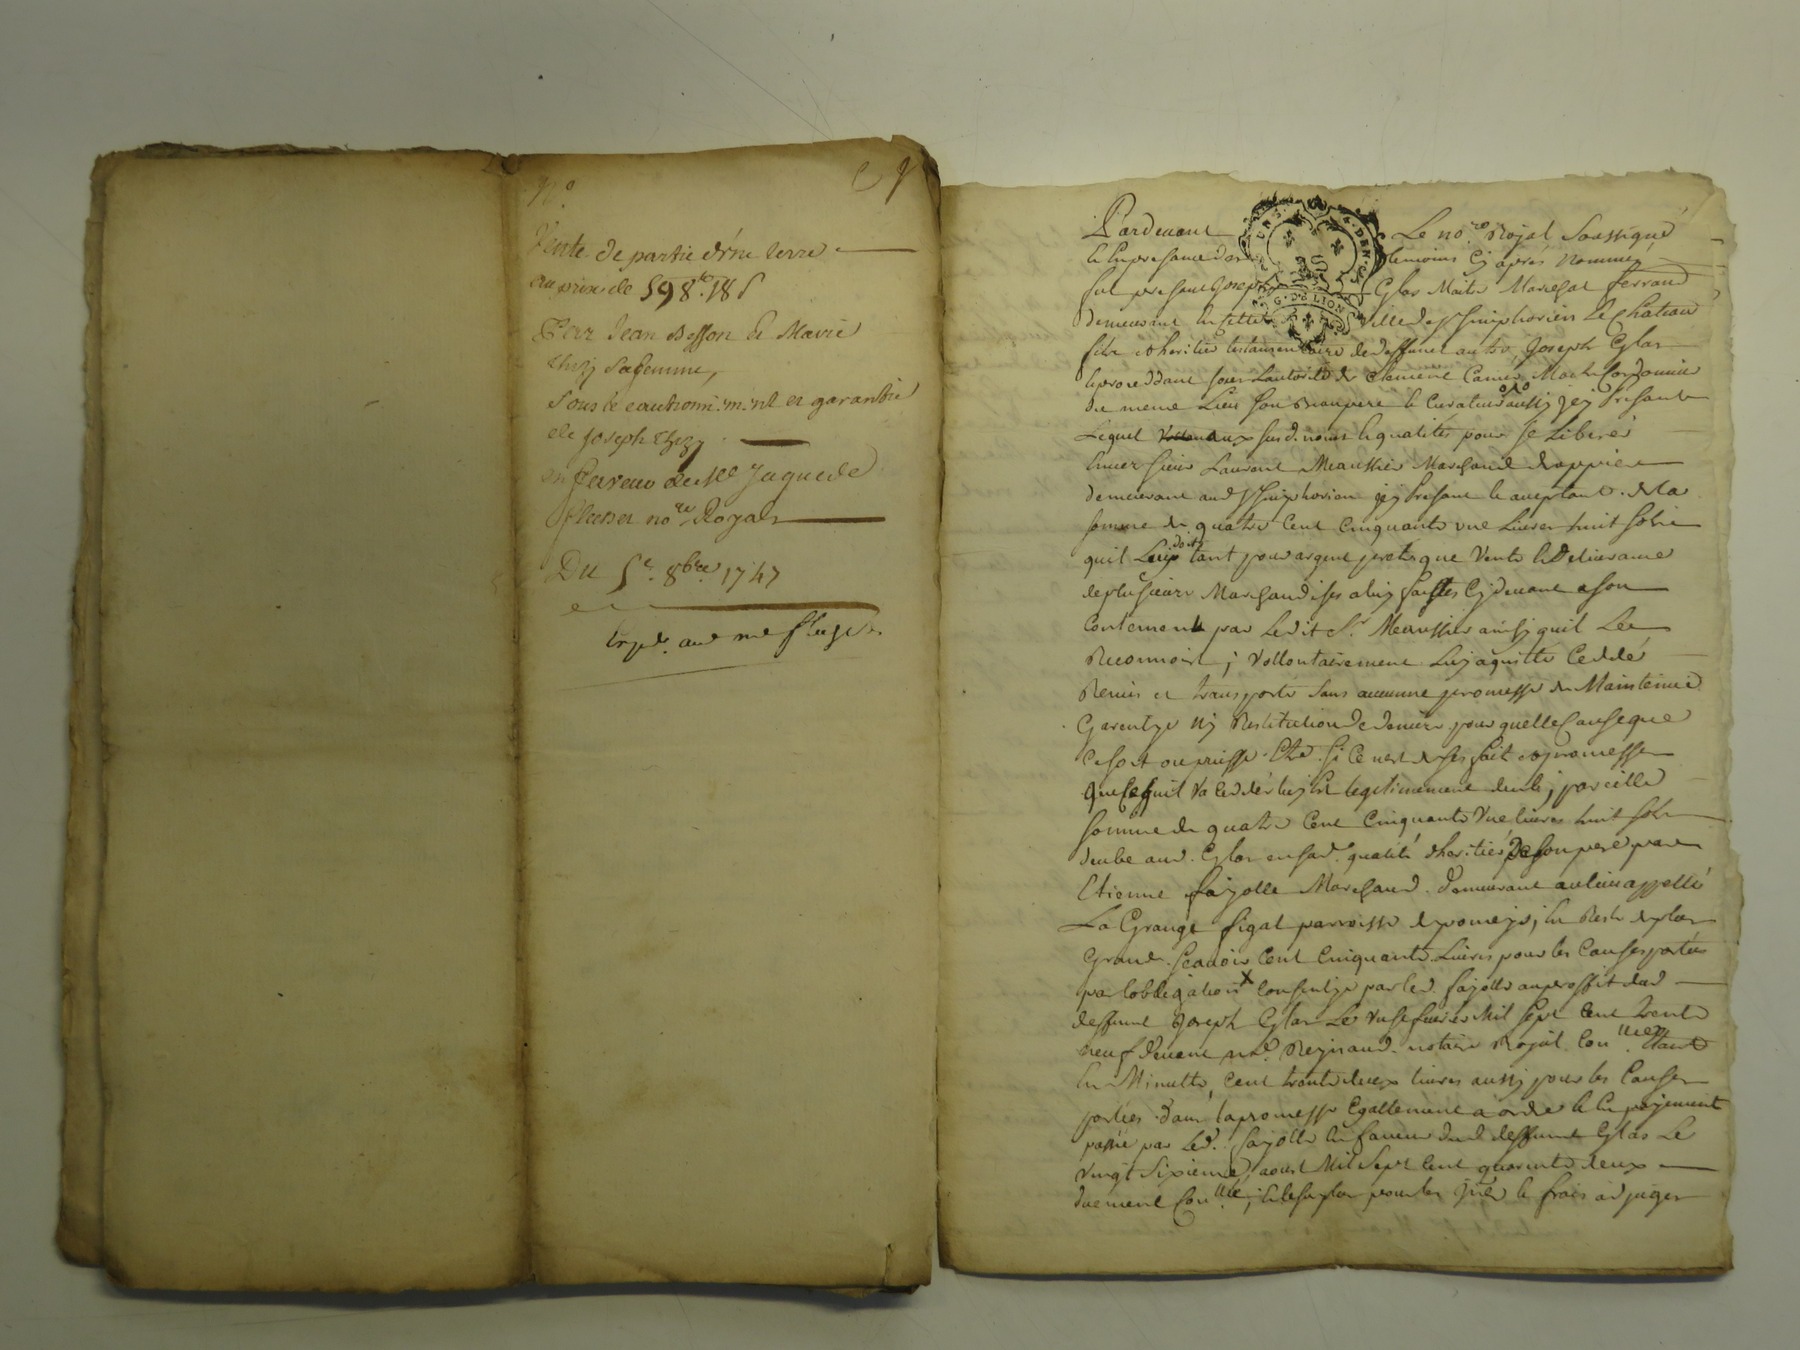 N.o
Vente de partie d'une terre
au prix de 598lt 18s
Par Jean Besson & Marie
Thizy sa femme,
Sous le cautionnement et garantie
de Joseph Thizy
en faveur de Me Jaque de
no.re Royal
Du 5e 8bre 1747
expe. aud me
Pardevant Le no.re Royal Soussigné
& En presance des temoins Cy après Nommés
fut presant Joseph Eglas Maitre Marechal ferrand
demeurant En cette Ville de St Simphorien Le Chateau
fils & heritier testamentaire de deffunct autre Joseph Eglas
procedant sous Lautorité de Clement Maitre Cordonnier
du meme Lieu son Beaupere & Curateur aussy jcy Presant
Lequel aux susd. noms & qualités pour se Liberer
Envers sieur Laurent Meaussier Marchand drappier
demeurant aud St Simphorien jcy Presant & aceptant . de la
somme de quatre Cent Cinquante une Livres huit sols
quil Luy doit tant pour argent preté que Vente & Delivrance
de plusieurs Marchandises a luy faittes Cy devant a son
Contement par Ledit Sr Meaussier ainsy quil Le
Reconnoit ; Vollontairement Luy a quitté Ceddé
Remis et transporté sans aucunne promesse de Maintenue
Garentye Ny Restitution de deniers pour quelle Cause que
Ce soit ou puisse Etre . si Ce nest de ses fait & promesse
que Ce quil Va Cedder luy Est legitimement deub ; pareille
somme de quatre Cent Cinquante Une livres huit sols
deube aud. Eglas en sad. qualité dheritier De son pere par
Etienne fayolle Marchand . demeurant au lieu appellé
La Grange figat parroisse de pomeys ; En Reste de plus
Grande . Scavoir Cent Cinquante Livres pour les Causes portées
par lobbligation x Consentye par led. fayolle au proffit dud
deffunt Joseph Eglas Le Onse fevrier Mil sept Cent trente
neuf devant me. Reynaud . notaire Royal Con.llée
En Minutte, Cent trente deux livres aussy pour les Causes
portées dans la promesse Egallement a ordre & En payement
passée par Led. fayolle En faveur dud deffunt Eglas Le
Vingt Sixieme aoust Mil Sept Cent quarente deux
duement Con.llée ; & le surplus pour les & frais adjuges